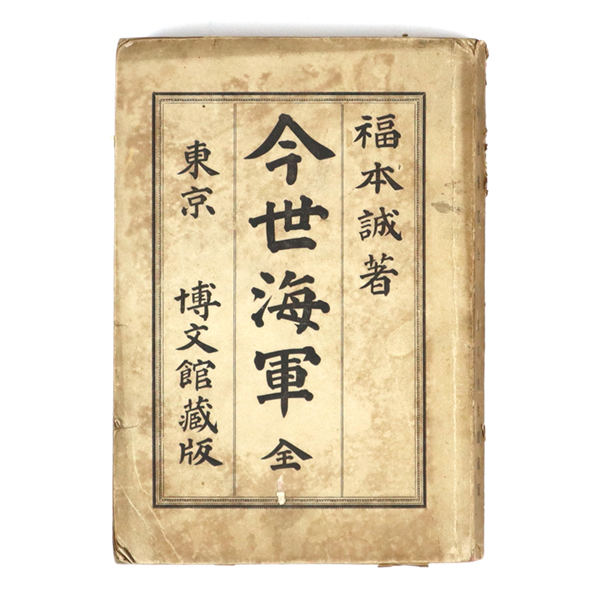 福本誠著
今世海軍 全
東京 博文館蔵版